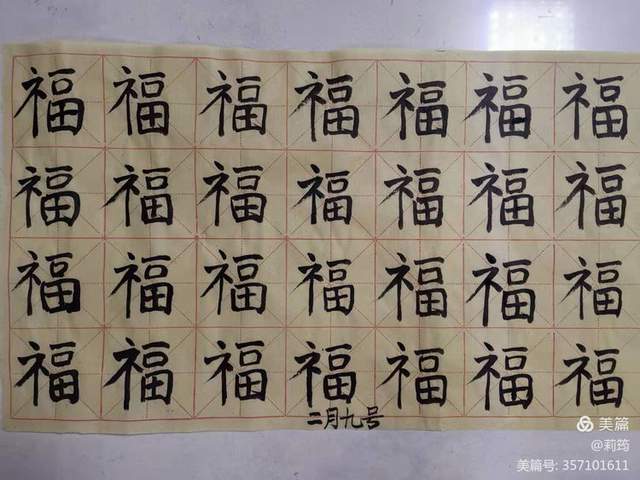 福福福福福福福
福福福福福福福
福福福福福福福
福福福福福福福
二月九号
美篇
@莉筠
美篇号: 357101611